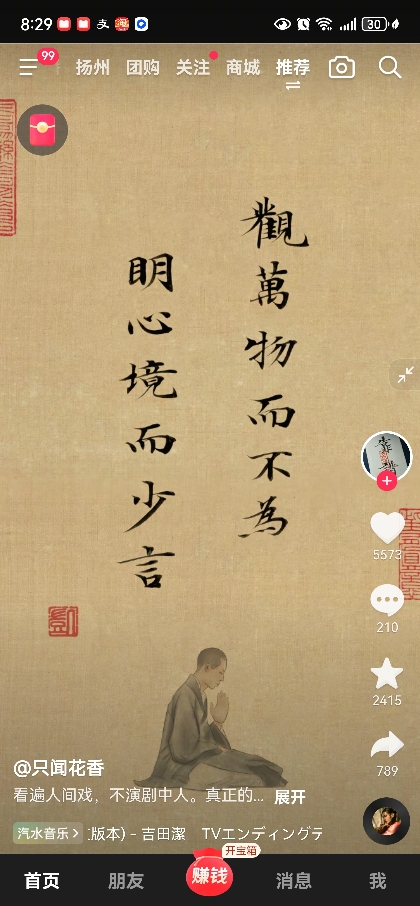 8:29
支
30
99
扬州
团购
关注
商城
推荐
觀萬物而不為
明心境而少言
5573
210
2415
789
@只闻花香
看遍人间戏，不演剧中人。真正的... 展开
汽水音乐 >
版本) - 吉田潔 TVエンディングテ
首页
朋友
开宝箱
赚钱
消息
我